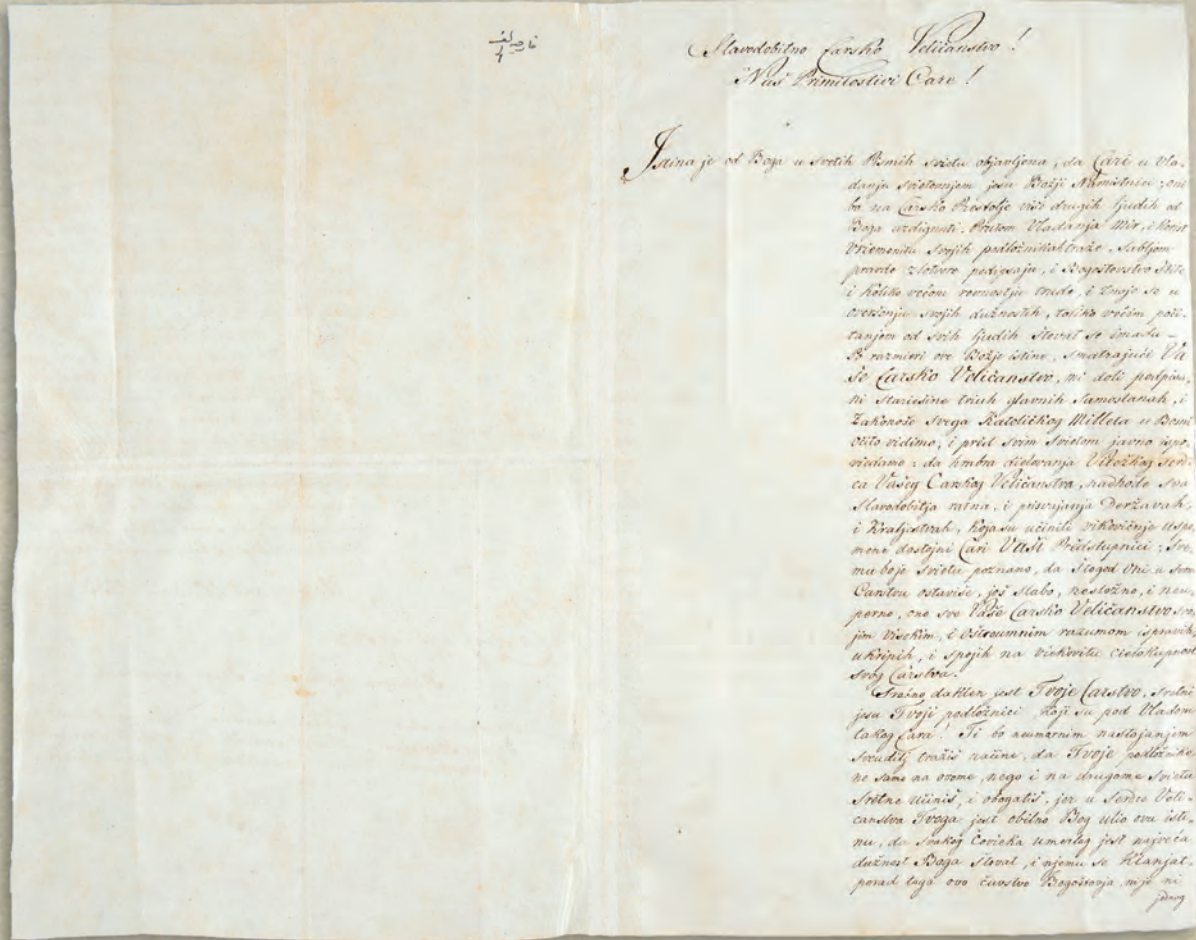 Slavodobitno Carsko Veličanstvo!
Naš Primilostivi Care!
Istina je od Boga u svetih Pismih svietu objavljena, da Cari u Vla-
danju svietovnjem jesu Božji Namistnici; oni
bo na Carsko Prestolje viši drugih ljudih od
Boga uzdignuti. Prutom Vladanja Mir, i Korist
Vriemenitu svojih podložnikah traže, Sabljom
pravde zlotvore, i Bogoštovstvo štite
i Koliko većom revnostju trude, i Znoje se u
overšenju svojih dužnostih, toliko većim poši-
tanjem od svih ljudih štovat se imadu –
Po razmieri ove Božje istine, smatrajući Va
še Carsko Veličanstvo, mi doli podpisa-
ni Starešine triuh glavnih Samostanah, i
Zakonoše svega Katoličkog Milleta u Bosni
Očito vidimo, i pred svim svietom javno ispo-
viedamo: da hrabra dielovanja Vitežkog serd-
ca Vašeg Carskog Veličanstva, nadhode sva
Slavodobitja ratna, i prisvajanja Deržavah,
i Kraljestvah, koja su učinili vikovičnje uspo
mene dostojni Cari Vaši Predstupnici; sve-
mu bo je svietu poznano, da štogod Oni u svom
Carstvu ostaviše, još slabo, nesložno, i neu-
perno, ono sve Vaše Carsko Veličanstvo svo-
jim visokim, i oštroumnim razumom ispravih,
ukripih, i spojih na viekovitu cielokupnost
svog Carstva.
Srećno daklen jest Tvoje Carstvo, sretni
jesu Tvoji podložnici, koji su pod Vladom
takog Cara! Ti bo neumornim nastojanjem
svudilj tražiš načine, da Tvoje podložnike
ne samo na ovome, nego i na drugome svietu
sretne učiniš, i obogatiš, jer u serdce Veli-
čanstva Tvoga jest obilno Bog ulio ovu isti-
nu, da svakog čovieka umerlog jest najveća
dužnost Boga štovat, i njemu se klanjat.
porad toga ovo čuvstvo Bogoštovja nije ni
jednog